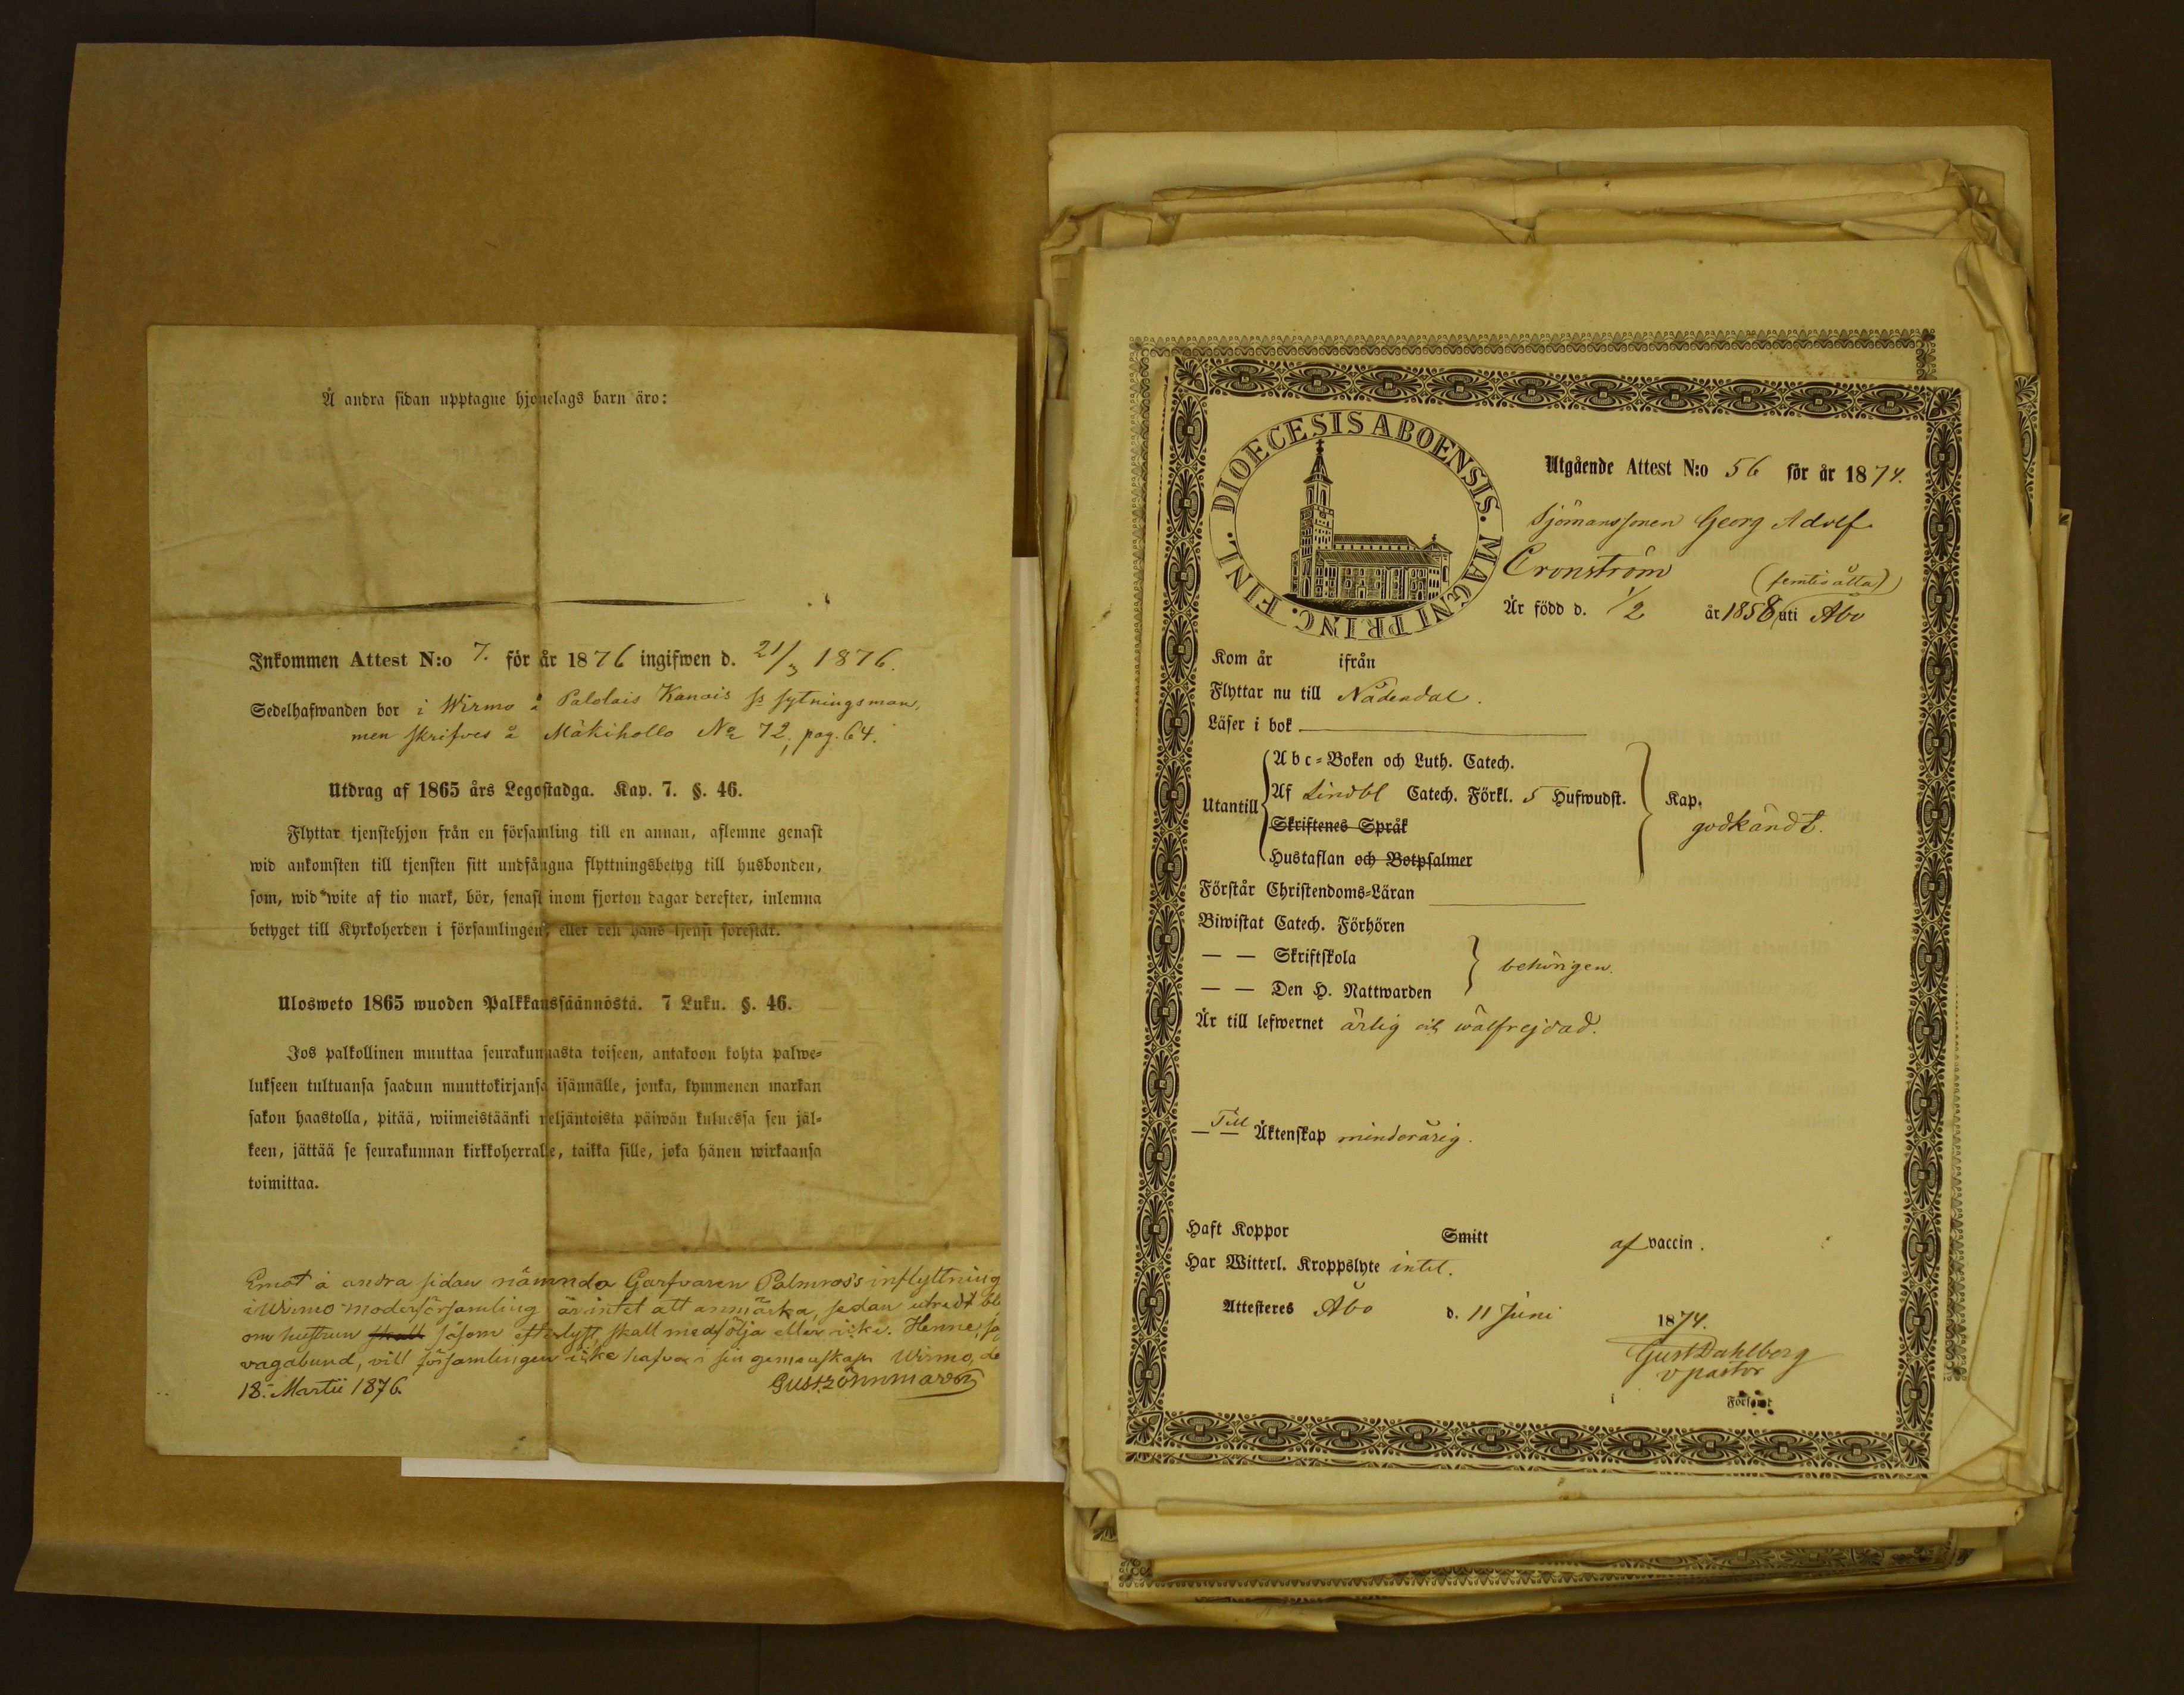 Å andra sidan upptagne hjonelags barn äro:
Inkommen Attest N:o 7. för år 1876 ingifwen d. 21/3 1876.
Sedelhafwanden bor i Wirmo å Palolais Kanois ss sytningsman,
men skrifves å Mäkihollo No 72, pag. 64.
Utdrag af 1865 års Legostadga. Kap. 7. §. 46.
Flyttar tjenstehjon från en församling till en annan, aflemne genast
wid ankomsten till tjensten sitt undfångna flyttningsbetyg till husbonden,
som, wid wite af tio mark, bör, senast inom fjorton dagar derefter, inlemna
betyget till Kyrkoherden i församlingen, eller den hans tjenst förestår.
Ulosweto 1865 wuoden Palkkaussäännöstä. 7 Luku. §. 46.
Jos palkollinen muuttaa seurakunnasta toiseen, antakoon kohta palwe=
lukseen tultuansa saadun muuttokirjansa isännälle, jonka, kymmenen markan
sakon haastolla, pitää, wiimeistäänki neljäntoista päiwän kuluessa sen jäl=
keen, jättää se seurakunnan kirkkoherralle, taikka sille, joka hänen wirkaansa
toimittaa.
Emot å andra sidan nämnda Garfvaren Palmros's inflyttning
i Wirmo moderförsamling är intet att anmärka, sedan utredt bl
om hustrun skall såsom efterlyst, skall medfölja eller icke. Henne, so
vagabund, vill församlingen icke hafva i sin gemenskap. Wirmo, de
18. Martii 1876. Gust. Lönnmark
DIOECESIS ABOENSIS. MAGNI PRINC. FINL.
Utgående Attest N:o 56 för år 1874.
Sjömanssonen Georg Adolf
Cronström
(femtioåtta)
Är född d. 1/2 år 1858 uti Åbo
Kom år ifrån
Flyttar nu till Nådendal.
Läser i bok
Utantill
Abc=Boken och Luth. Catech.
Af Lindbl Catech. Förkl. 5 Hufwudst. Kap.
Skriftenes Språk godkändt.
Hustaflan och Botpsalmer
Förstår Christendoms=Läran
Biwistat Catech. Förhören
— — Skriftskola behörigen.
— — Den H. Nattwarden
Är till lefwernet ärlig och wälfrejdad.
— Till — Äktenskap minderårig.
Haft Koppor Smitt af vaccin.
Har Witterl. Kroppslyte intet.
Attesteras Åbo d. 11 Juni 1874.
Gust Dahlberg
v pastor
i Församl